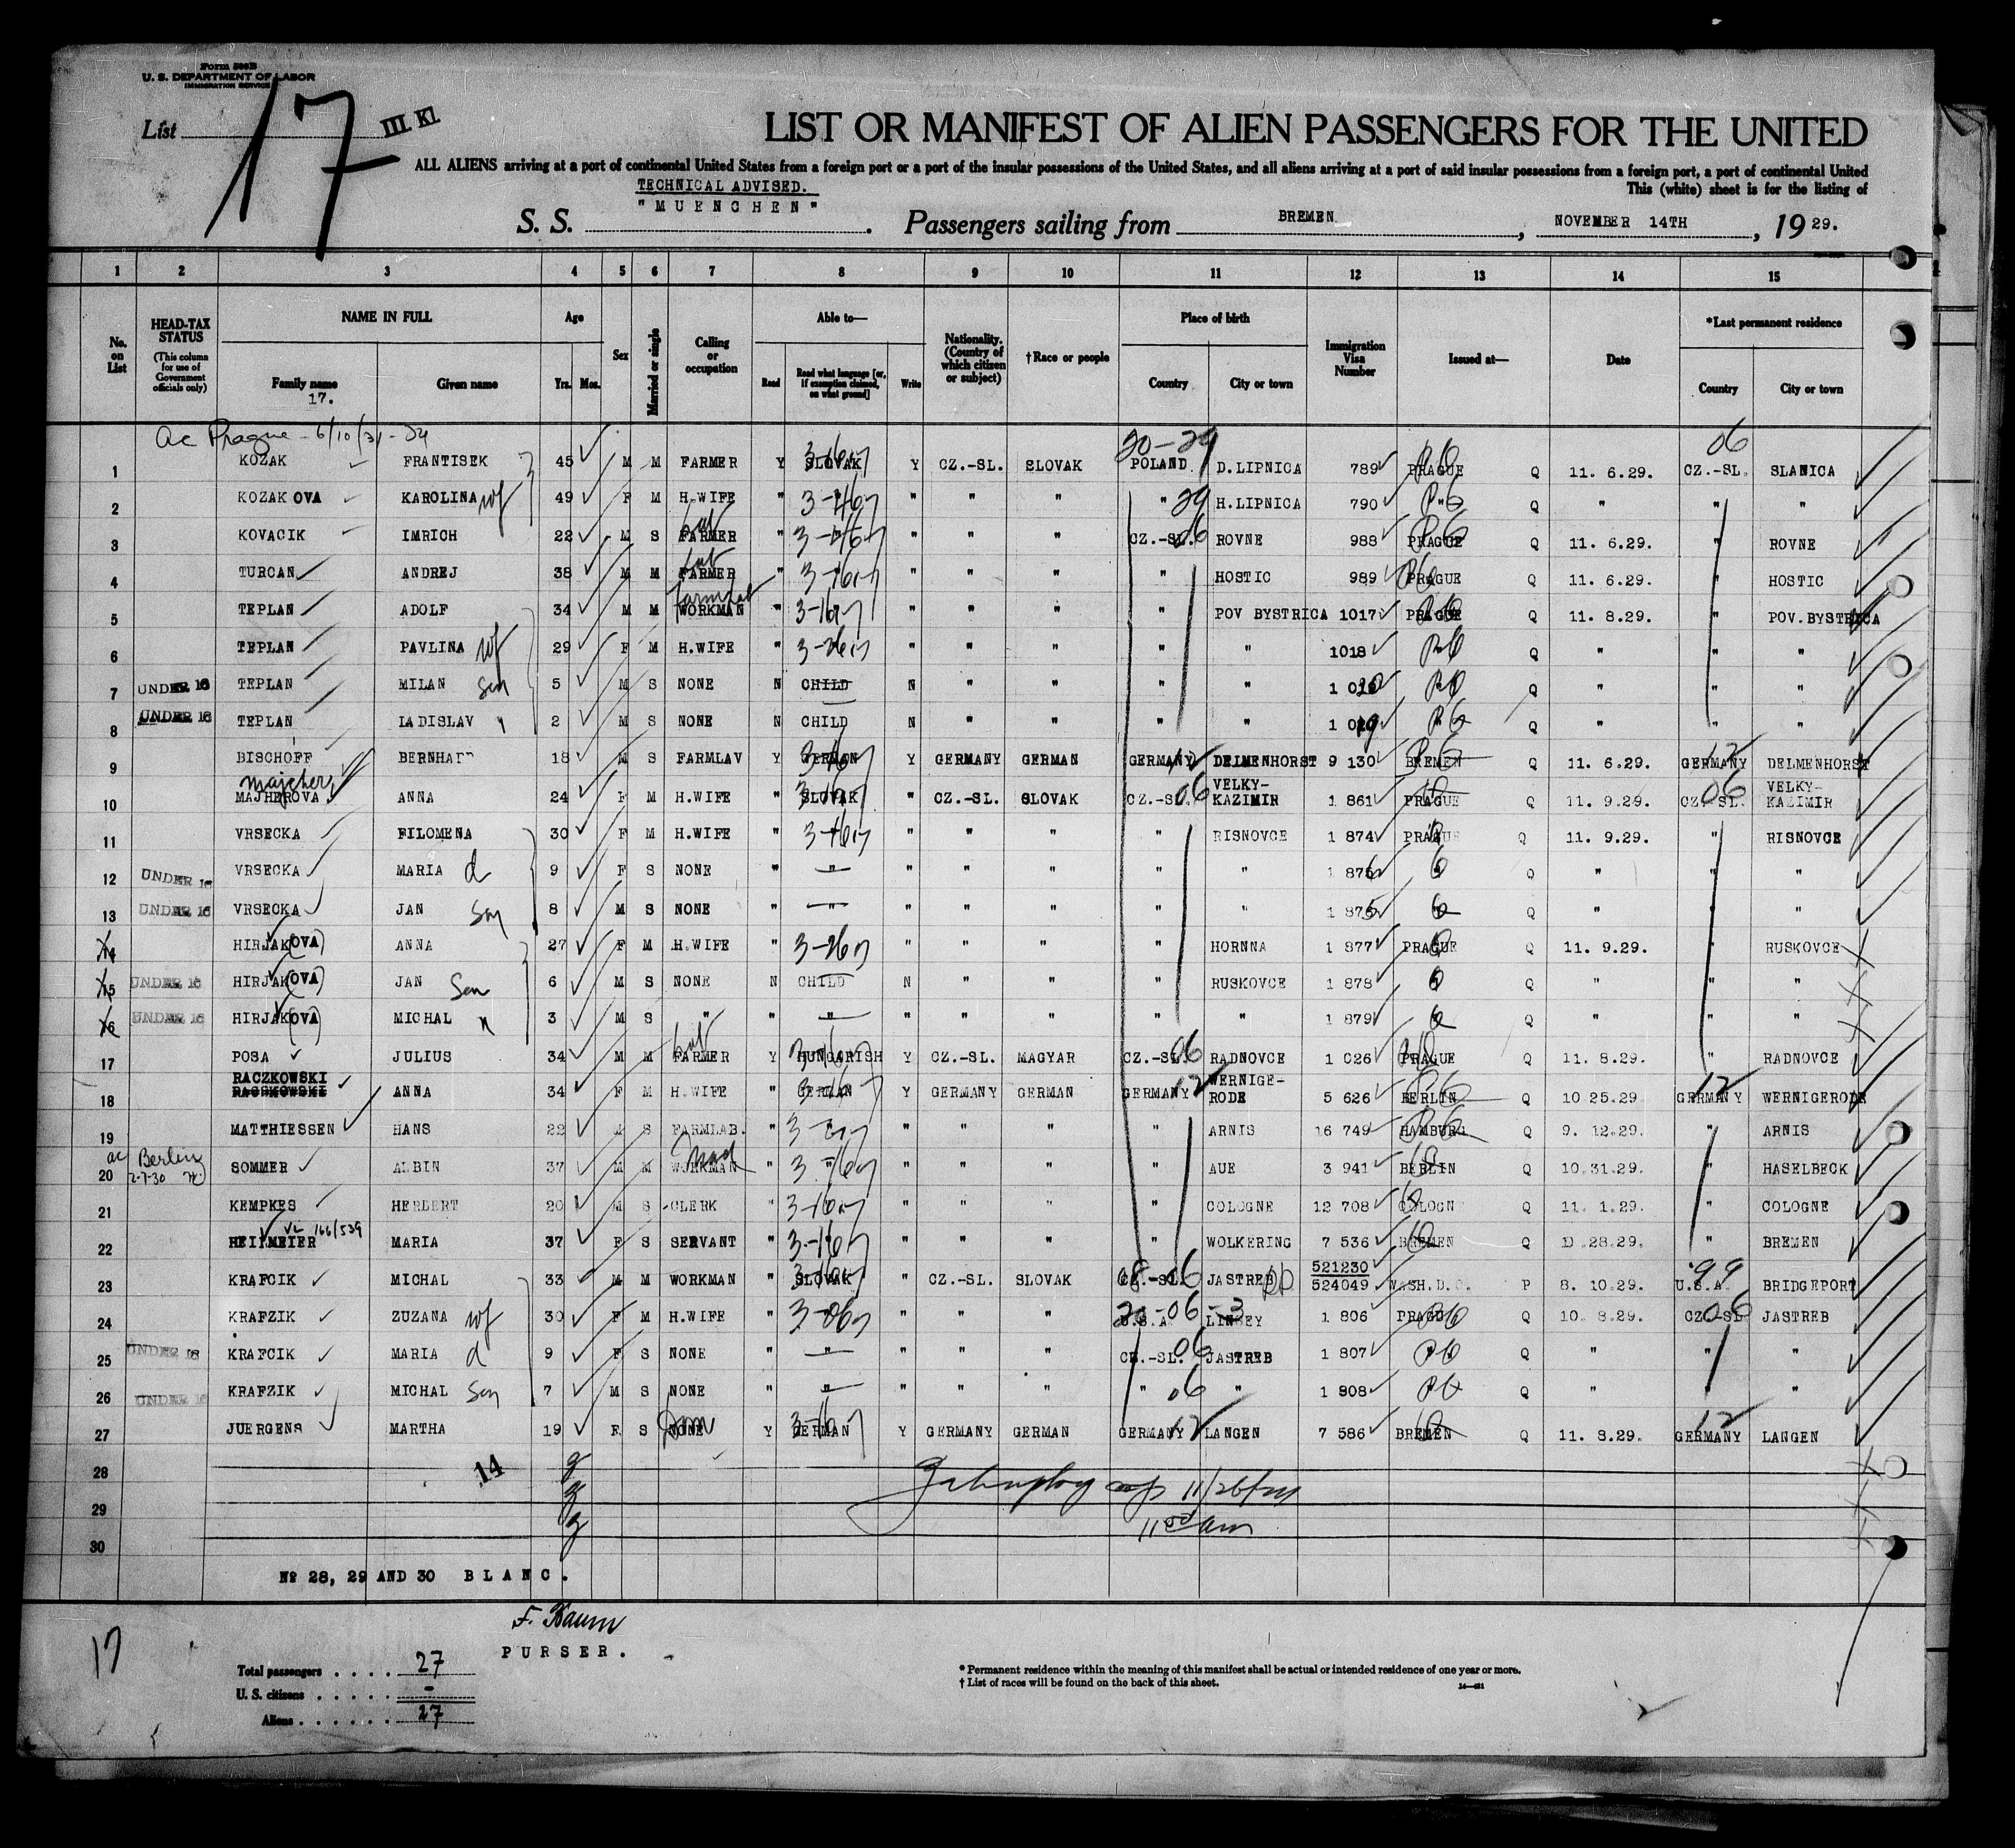 Form 500B
U. S. DEPARTMENT OF LABOR
IMMIGRATION SERVICE
List 17 III Kl
LIST OR MANIFEST OF ALIEN PASSENGERS FOR THE UNITED
ALL ALIENS arriving at a port of continental United States from a foreign port or a port of the insular possessions of the United States, and all aliens arriving at a port of said insular possessions from a foreign port, a port of continental United
TECHNICAL ADVISED. This (white) sheet is for the listing of
S. S. "MUENCHEN". Passengers sailing from BREMEN, NOVEMBER 14TH, 19 29.
1 2 3 4 5 6 7 8 9 10 11 12 13 14 15
No. on List HEAD-TAX STATUS (This column for use of Government officials only) NAME IN FULL Family name Given name Age Yrs. Mos. Sex Married or single Calling or occupation Able to— Read Read what language [or, if exemption claimed, on what ground] Write Nationality. (Country of which citizen or subject) †Race or people Place of birth Country City or town Immigration Visa Number Issued at— Date *Last permanent residence Country City or town
17.
ac Prague - 6/10/31 - 24
1 KOZAK FRANTISEK 45 M M FARMER Y SLOVAK Y CZ.-SL. SLOVAK POLAND D.LIPNICA 789 PRAGUE Q 11. 6.29. CZ.-SL. SLANICA
2 KOZAK OVA KAROLINA wf 49 F M H.WIFE " " " " " " H.LIPNICA 790 " Q " " "
3 KOVACIK IMRICH 22 M S FARMER " " " " " CZ.-SL. ROVNE 988 PRAGUE Q 11. 6.29. " ROVNE
4 TURCAN ANDREJ 38 M M FARMER " " " " " " HOSTIC 989 PRAGUE Q 11. 6.29. " HOSTIC
5 TEPLAN ADOLF 34 M M WORKMAN " " " " " " POV BYSTRICA 1017 PRAGUE Q 11. 8.29. " POV.BYSTRICA
6 TEPLAN PAVLINA wf 29 F M H.WIFE " " " " " " " 1018 " Q " " "
7 UNDER 16 TEPLAN MILAN son 5 M S NONE N CHILD N " " " " Q " " "
8 UNDER 16 TEPLAN LADISLAV " 2 M S NONE N CHILD N " " " " Q " " "
9 BISCHOFF BERNHARD 18 M S FARMLAV Y GERMAN Y GERMANY GERMAN GERMANY DELMENHORST 9 130 BREMEN Q 11. 6.29. GERMANY DELMENHORST
Majcher
10 MAJHEROVA ANNA 24 F M H.WIFE " SLOVAK " CZ.-SL. SLOVAK CZ.-SL. VELKY-KAZIMIR 1 861 PRAGUE Q 11. 9.29. CZ.-SL. VELKY-KAZIMIR
11 VRSECKA FILOMENA 30 F M H.WIFE " " " " " " RISNOVCE 1 874 PRAGUE Q 11. 9.29. " RISNOVCE
12 UNDER 16 VRSECKA MARIA d 9 F S NONE " " " " " " " 1 876 Q " " "
13 UNDER 16 VRSECKA JAN son 8 M S NONE " " " " " " " 1 875 Q " " "
14 HIRJAK(OVA) ANNA 27 F M H.WIFE " " " " " HORNNA 1 877 PRAGUE Q 11. 9.29. " RUSKOVCE
15 UNDER 16 HIRJAK(OVA) JAN son 6 M S NONE N CHILD N " " " RUSKOVCE 1 878 Q " " "
16 UNDER 16 HIRJAK(OVA) MICHAL " 3 M S " " " " " " " " 1 879 Q " " "
17 POSA JULIUS 34 M M FARMER Y HUNGARISH Y CZ.-SL. MAGYAR CZ.-SL. RADNOVCE 1 026 PRAGUE Q 11. 8.29. " RADNOVCE
RACZKOWSKI
18 ANNA 34 F M H.WIFE " GERMAN Y GERMANY GERMAN GERMANY WERNIGE-RODE 5 626 BERLIN Q 10 25.29. GERMANY WERNIGERODE
19 MATTHIESSEN HANS 22 M S FARMLAB. " " " " " " ARNIS 16 749 HAMBURG Q 9. 12.29. " ARNIS
ac Berlin 2-7-30
20 SOMMER ALBIN 37 M M WORKMAN " " " " " " AUE 3 941 BERLIN Q 10.31.29. " HASELBECK
21 KEMPKES HERBERT 20 M S CLERK " " " " " " COLOGNE 12 708 COLOGN Q 11. 1.29. " COLOGNE
166/539
22 HEITMEIER MARIA 37 F S SERVANT " " " " " " WOLKERING 7 536 BREMEN Q 28.29. " BREMEN
23 KRAFCIK MICHAL 33 M M WORKMAN " SLOVAK " CZ.-SL. SLOVAK CZ.-SL. JASTREB 521230 524049 WASH.D.C. P 8. 10.29. U.S.A. BRIDGEPORT
24 KRAFZIK ZUZANA wf 30 F M H.WIFE " " " " " U.S.A. 1 806 PRAGUE Q 10. 8.29. CZ.-SL JASTREB
25 UNDER 16 KRAFCIK MARIA d 9 F S NONE " " " " " CZ.-SL. JASTREB 1 807 " Q " " "
26 UNDER 16 KRAFZIK MICHAL son 7 M S NONE " " " " " " " 1 808 " Q " " "
27 JUERGENS MARTHA 19 F S NONE Y GERMAN Y GERMANY GERMAN GERMANY LANGEN 7 586 BREMEN Q 11. 8.29. GERMANY LANGEN
28 14
29
30
11 00 am
No 28, 29 AND 30 BLANC.
F. Kaum
PURSER.
17
Total passengers .... 27
U. S. citizens ..... -
Aliens ...... 27
* Permanent residence within the meaning of this manifest shall be actual or intended residence of one year or more.
† List of races will be found on the back of this sheet.